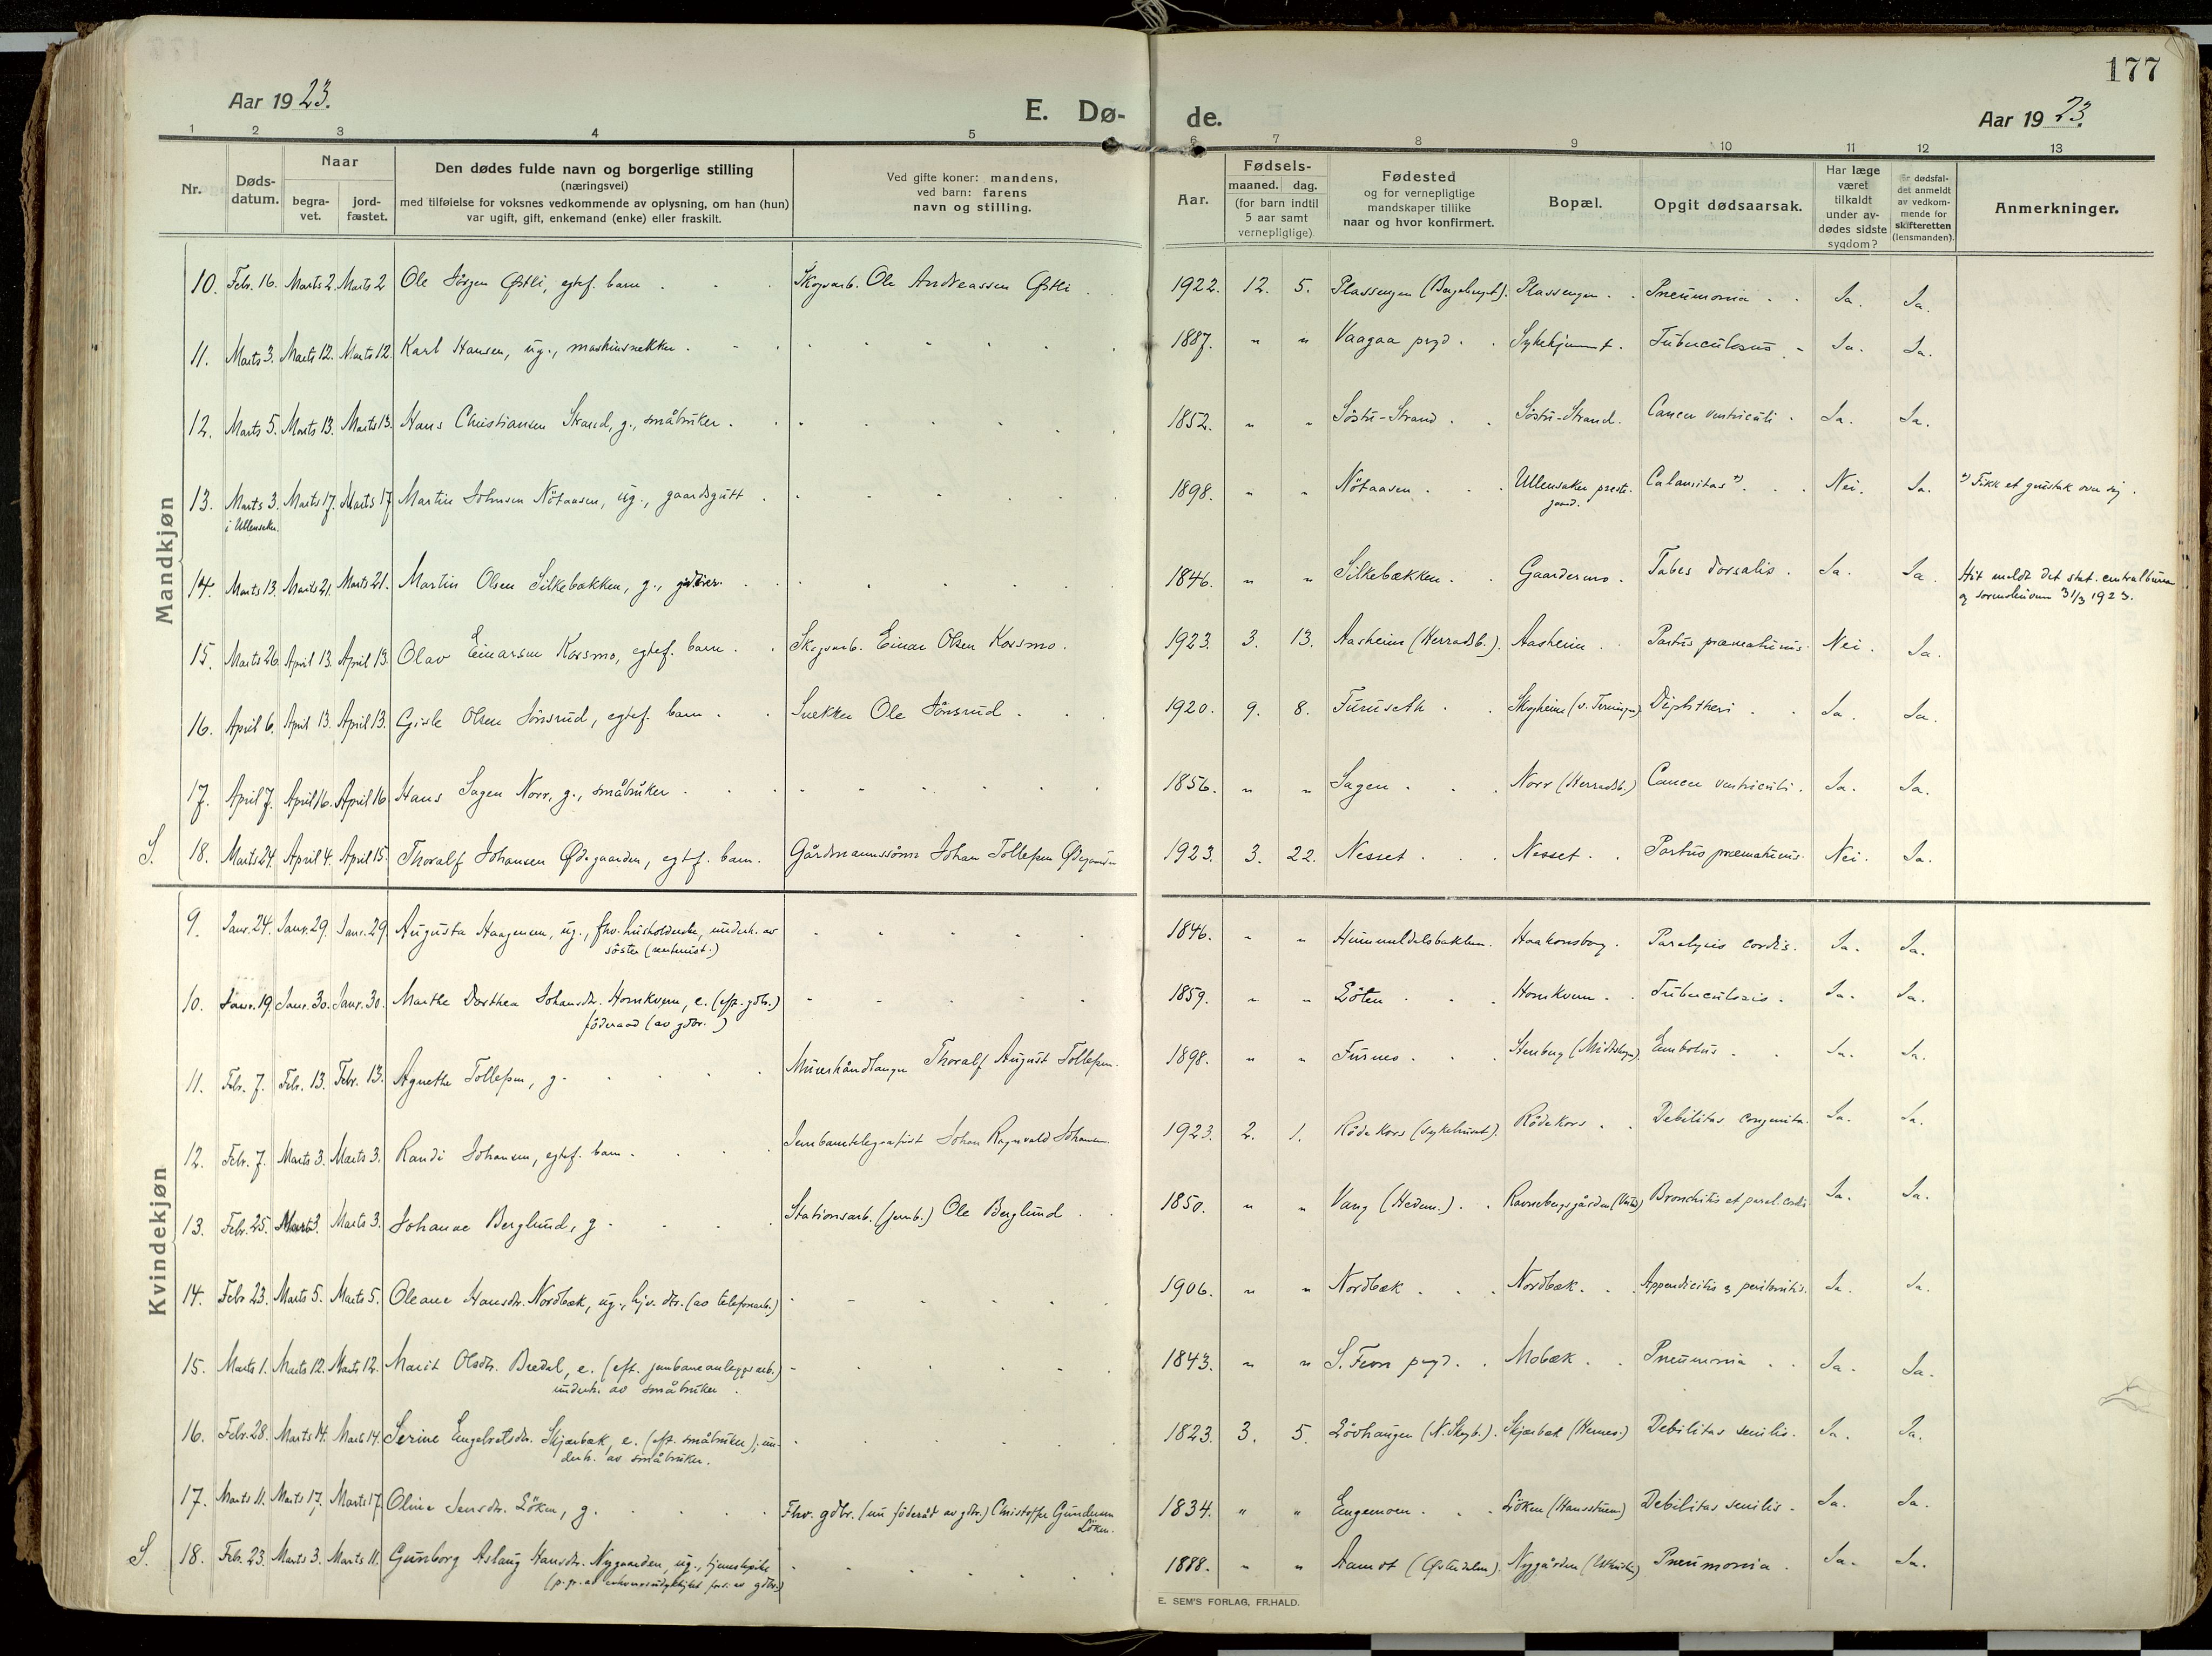 177
Aar 1923.
E. Dø-
de.
Aar 1923.
1 2 3 4 5 6 7 8 9 10 11 12 13
Nr.
Døds-
datum.
Naar
begra-
vet.
jord-
fæstet.
Den dødes fulde navn og borgerlige stilling
(næringsvei)
med tilføielse for voksnes vedkommende av oplysning, om han (hun)
var ugift, gift, enkemand (enke) eller fraskilt.
Ved gifte koner: mandens,
ved barn: farens
navn og stilling.
Aar.
Fødsels-
maaned. dag.
(for barn indtil
5 aar samt
vernepligtige).
Fødested
og for vernepligtige
mandskaper tillike
naar og hvor konfirmert.
Bopæl.
Opgit dødsaarsak.
Har læge
været
tilkaldt
under av-
dødes sidste
sygdom?
Er dødsfal-
det anmeldt
av vedkom-
mende for
skifteretten
(lensmanden).
Anmerkninger.
Mandkjøn
10. Febr. 16. Marts 2. Marts 2 Ole Jörgen Østli, egtef. barn Skogsarb. Ole Andreassen Østli 1922. 12. 5. Plassengen Plassengen Pneumonia Ja. Ja.
11. Marts 3. Marts 12. Marts 12. Karl Hansen, ug., maskinsnekker 1887. " " Vaagaa prgd. Sykehjemmet. Tuberculosis Ja. Ja.
12. Marts 5. Marts 13. Marts 13. Hans Christiansen Strand, g., småbruker 1852. " " Söstu-Strand Söstu-Strand. Cancer ventriculi Ja. Ja.
13. Marts 3. Marts 17. Marts 17 Martin Johnsen Nötaasen, ug., gaardsgutt 1898. " " Nötaasen Ullensaker preste- Calamitas *) Nei. Ja. *) Fikk et grustak over sig.
i Ullensaker. gaard.
14. Marts 13. Marts 21. Marts 21. Martin Olsen Silkebakken, g., 1846. " " Silkebækken Gaardermo. Tabes dorsalis. Ja. Ja. Hit meldt det stat. centralbureau
og sorenskriveren 31/3 1923.
15. Marts 26. April 13. April 13. Olav Einarsen Korsmo, egtef. barn Skogsarb. Einar Olsen Korsmo. 1923. 3. 13. Aasheim (Herradsb.). Aasheim Partus præmaturus. Nei. Ja.
16. April 6. April 13. April 13. Gisle Olsen Jönsrud, egtef. barn Snekker Ole Jönsrud 1920. 9. 8. Furuseth Skogheim Diphtheri Ja. Ja.
17. April 7. April 16. April 16 Hans Sagen Norr, g., småbruker 1856. " " Sagen Norr (Herradsb.) Cancer ventriculi. Ja. Ja.
S. 18. Marts 24. April 4. April 15. Thoralf Johansen Ødegaarden, egtf. barn. Gårdmannssönn Johan Tollefsen Ødegaarden 1923. 3. 22. Nesset Nesset. Partus præmaturus. Nei. Ja.
Kvindekjøn
9. Janr. 24. Janr. 29. Janr. 29. Augusta Haagensen, ug., fhv. husholderske, underh. av 1846. " " Hummeldalsbakken. Haakonsborg. Paralysis cordis. Ja. Ja.
söster
10. Janr. 19. Janr. 30. Janr. 30. Marthe Dorthea Johansdr. Hornkvern, e. (eft. gdbr.) 1859. " " Löten Hornkvern. Tuberculosis. Ja. Ja.
föderaad (av gdbr.)
11. Febr. 7. Febr. 13. Febr. 13. Agnethe Tollefsen, g. Murerhåndlanger Thoralf August Tollefsen. 1898. " " Furnes Stenberg Embolus Ja. Ja.
12. Febr. 7. Marts 3. Marts 3. Randi Johansen, egtef. barn Jernbanetelegrafist Johan Ragnvald Johansen. 1923. 2. 1. Röde Kors (sykehuset). Röde Kors Debilitas congenita. Ja. Ja.
13. Febr. 25. Marts 3. Marts 3. Johanne Berglund, g. Stationsarb. (jernb.) Ole Berglund 1850. " " Vang (Hedem.) Ravnebergsgården Bronchitis et paral. cordis Ja. Ja.
14. Febr 23. Marts 5. Marts 5. Oleane Hansdr. Nordbæk, ug., hjv. dtr. (av telefonarb.) 1906. " " Nordbæk Nordbæk. Appendicitis & peritonitis. Ja. Ja.
15. Marts 1. Marts 12. Marts 12. Marit Olsdr. Bredal, e. (eft. jernbaneanleggsarb.) 1843. " " S. Fron prgd. Mobæk Pneumonia Ja. Ja.
underh. av småbruker.
16. Febr. 28. Marts 14. Marts 14. Serine Engebretsdr. Skjærbæk, e. (eft. småbruker), un- 1823. 3. 5. Lövhaugen (N. Skogb.). Skjærbæk (Hernes.) Debilitas senilis. Ja. Ja.
derh. av småbruker.
17. Marts 11. Marts 17. Marts 17 Oline Jensdr. Löken, g. Fhv. gdbr. (nu föderåd av gdbr.) Christoffer Gundersen 1834. " " Engemoen Löken Debilitas senilis. Ja. Ja.
Löken.
S. 18. Febr. 23. Marts 3. Marts 11. Gunborg Aslaug Hansdr. Nygaarden, ug., tjenestepike 1888. " " Aamot (Østerdalen). Nygården Pneumonia. Ja. Ja.
E. SEM'S FORLAG, FR.HALD.